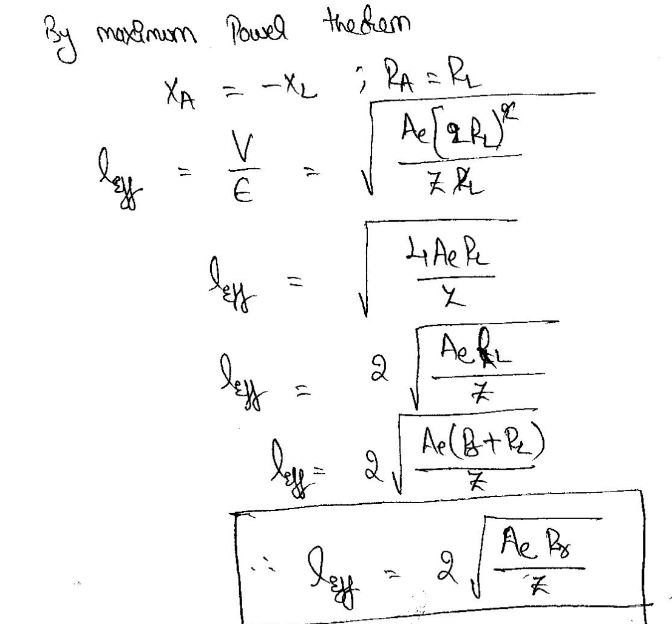 By maximum Power theorem
X_A = -X_L ; R_A = R_L
l_eff = V/E = √(Ae[2R_L]²/Z R_L)
l_eff = √(4AeR_L/Z)
l_eff = 2√(AeR_L/Z)
l_eff = 2√(Ae(R_r+R_L)/Z)
∴ l_eff = 2√(Ae R_r/Z)